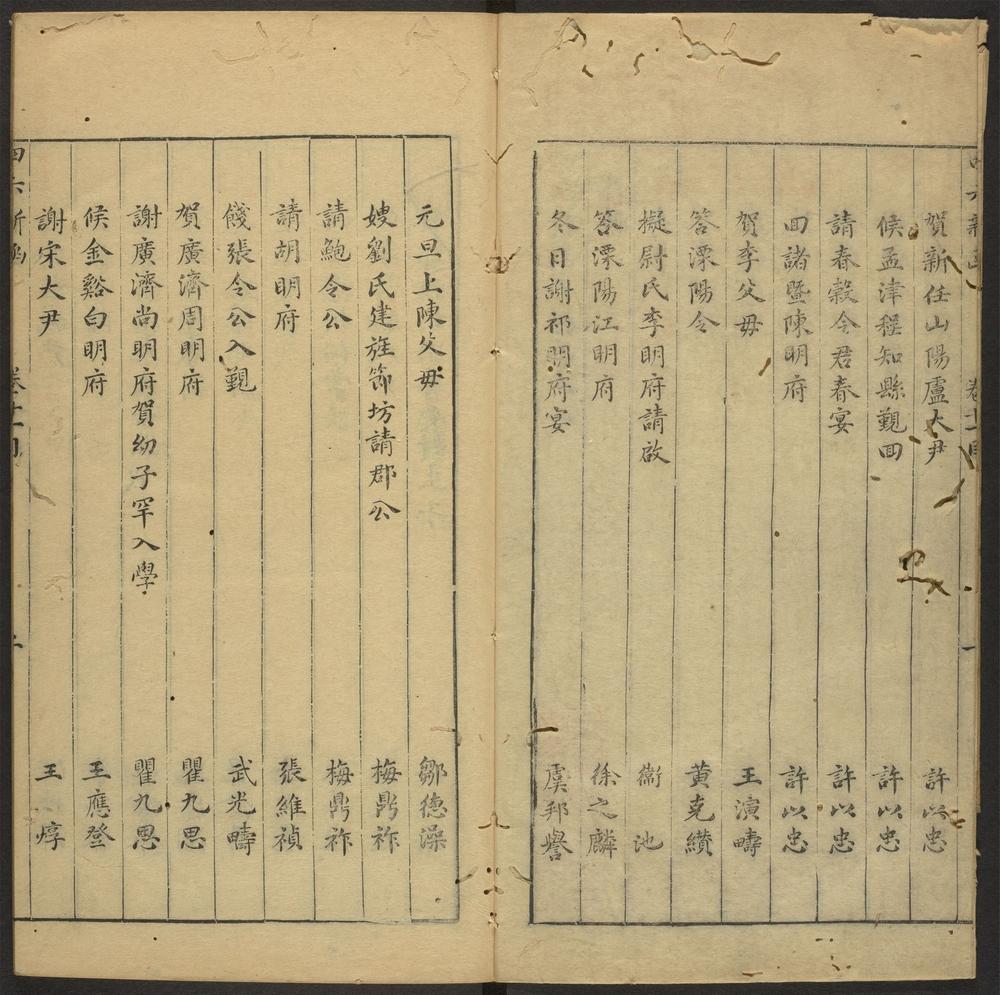 四六新函 卷十一目 一
賀新任山陽盧大尹 許以忠
候孟津程知縣覲回 許以忠
請春穀令君春宴 許以忠
回諸暨陳明府 許以忠
賀李父毋 王演疇
答溧陽令 黃克纉
擬尉氏李明府請啟 衞池
答溧陽江明府 徐之麟
冬日謝祁明府宴 虞邦譽
元旦上陳父毋 鄒德溁
嫂劉氏建旌節坊請郡公 梅鼎祚
請鮑令公 梅鼎祚
請胡明府 張維禎
餞張令公入覲 武光疇
賀廣濟周明府 瞿九思
謝廣濟尚明府賀幼子罕入學 瞿九思
候金谿白明府 王應登
謝宋大尹 王焞
四六新函 卷十一目 二